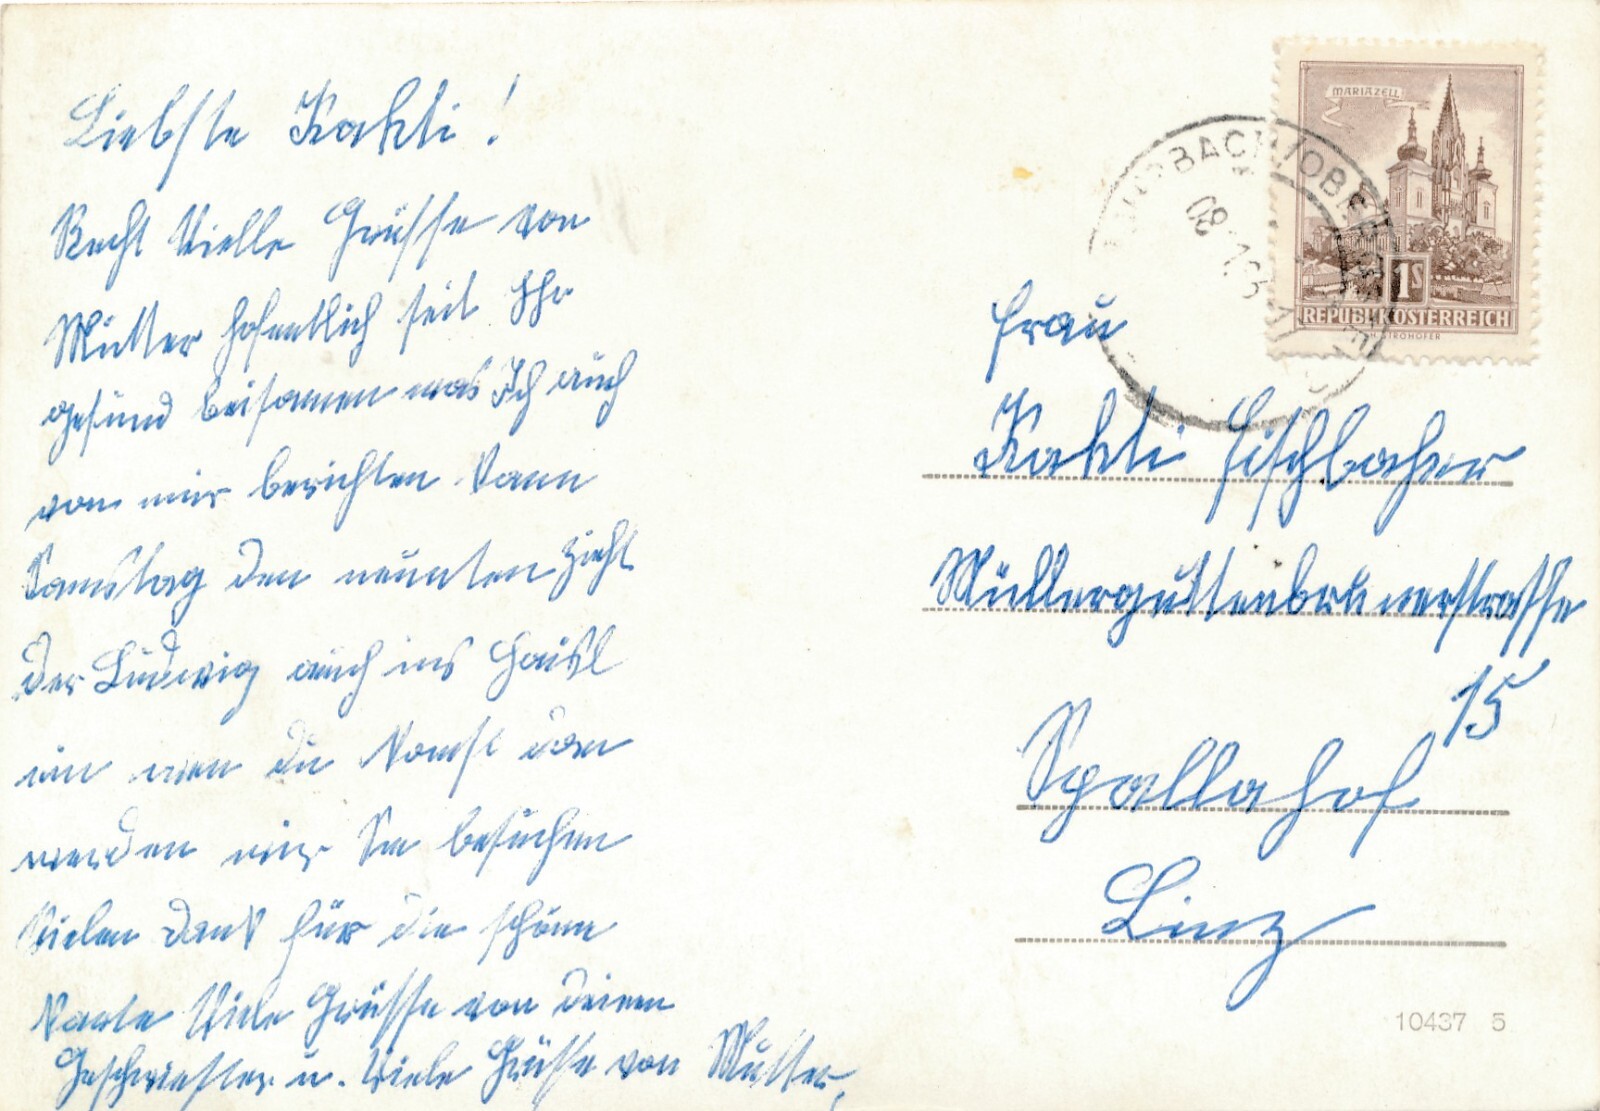 Liebste Kathi!
Recht Vielle Grüsse von
Mutter hofentlich seit Ihr
gesund beisamen was Ich auch
von mir berichten kann
Samstag den neunten zieht
der Ludwig auch ins Häusl
un wen du komst dan
werden wir Sie besuchen
Vielen Dank für die schöne
Karte Viele Grüsse von deinen
Geschwister u. Viele Grüsse von Mutter,
MARIAZELL
1S
REPUBLIK ÖSTERREICH
08
Frau
Kathi Fischbacher
Müllerguttenbrunerstrasse
15
Spallahof
Linz
10437 5